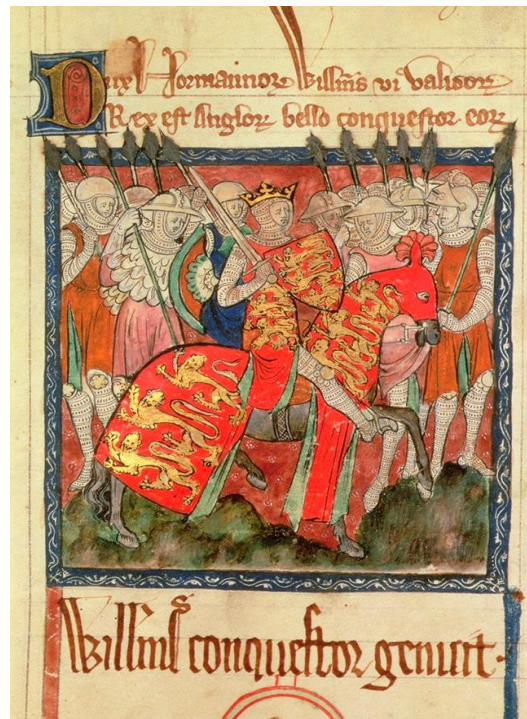 Dux Normannoꝝ Willm̄s vi validoꝝ
Rex est Angloꝝ bello conquestor eoꝝ
Willm̄s conquestor genuit·